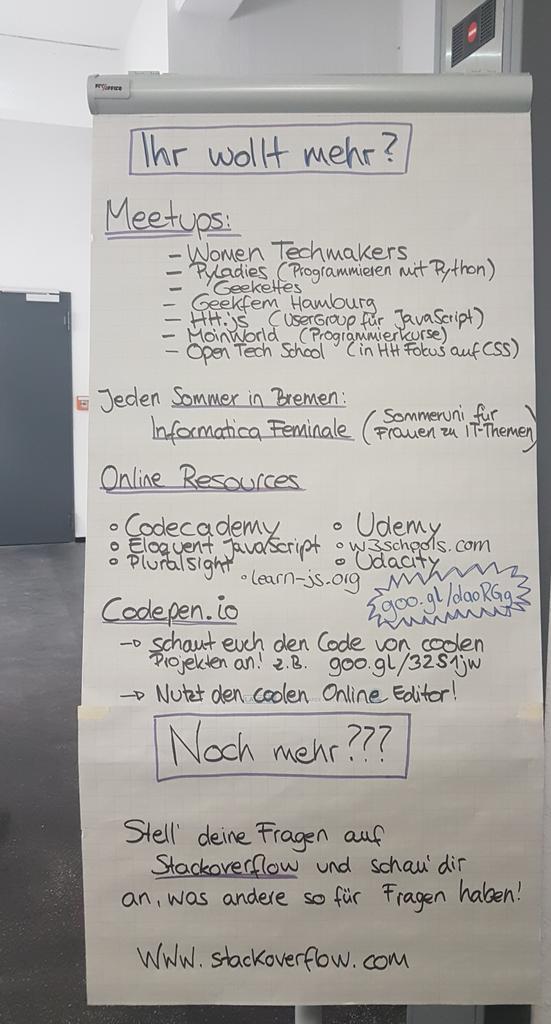 Ihr wollt mehr?
Meetups:
- Women Techmakers
- PyLadies (Programmieren mit Python)
- Geekettes
- Geekfem Hamburg
- HH.js (UserGroup für JavaScript)
- MoinWorld (Programmierkurse)
- Open Tech School (in HH Fokus auf CSS)
Jeden Sommer in Bremen:
Informatica Feminale (Sommeruni für
Frauen zu IT-Themen)
Online Resources
• Codecademy
• Eloquent JavaScript
• Pluralsight
• learn-js.org
• Udemy
• w3schools.com
• Udacity
goo.gl/daoRGg
Codepen.io
→ schaut euch den Code von coolen
Projekten an! z.B. goo.gl/32S1jw
→ Nutzt den coolen Online Editor!
Noch mehr???
Stell' deine Fragen auf
Stackoverflow und schau' dir
an, was andere so für Fragen haben!
WWW.stackoverflow.com